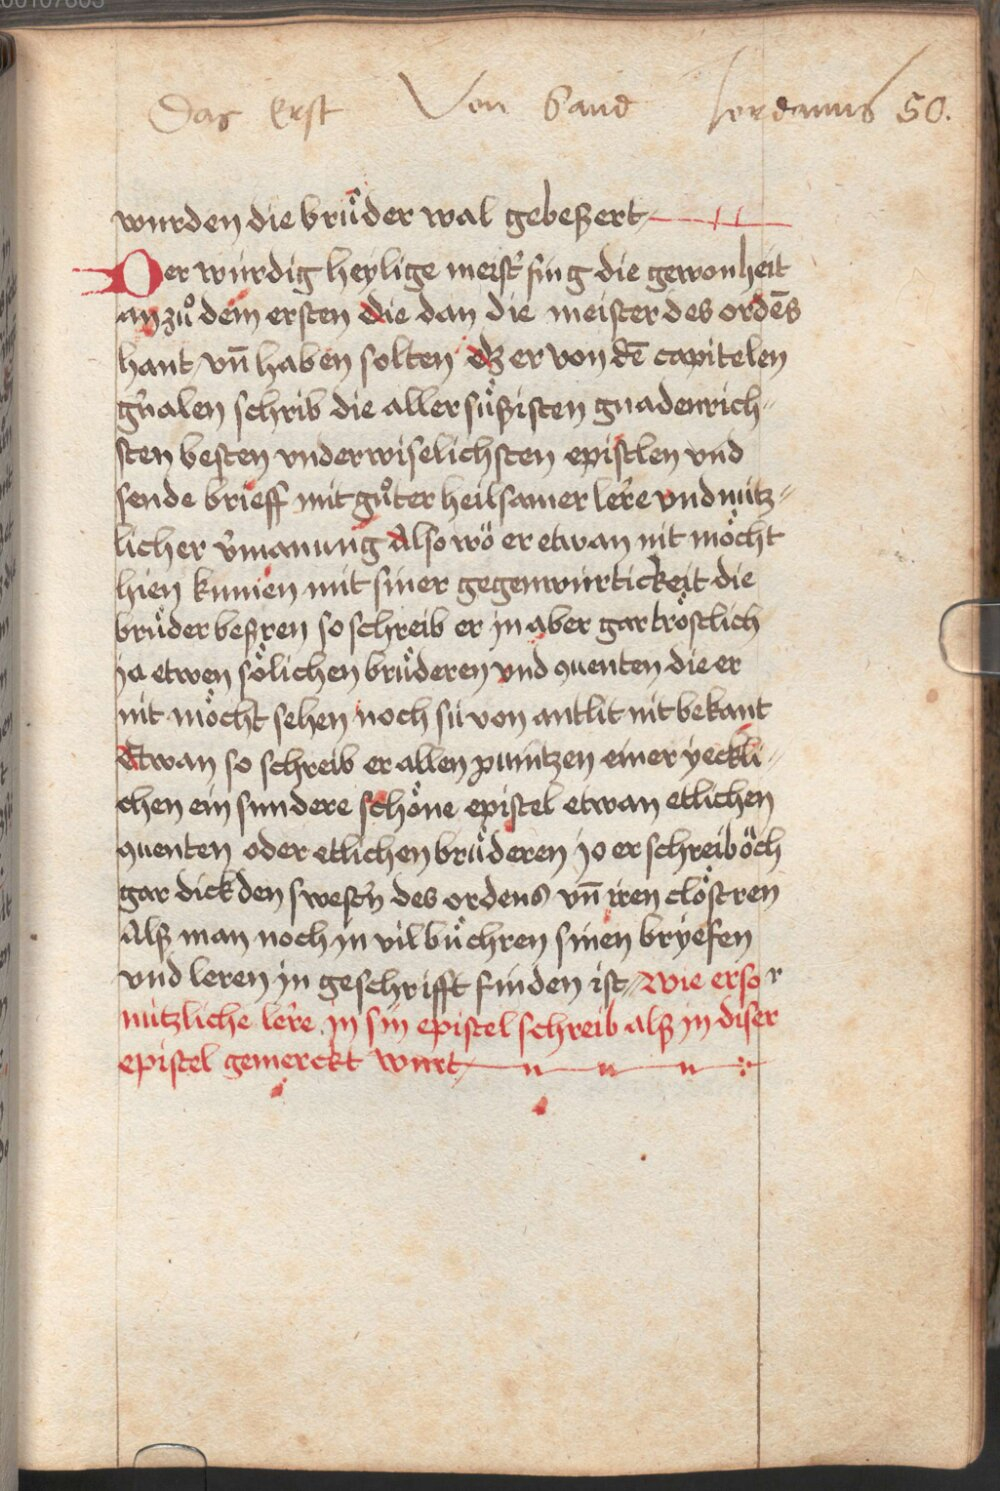 Das Erst Von Sand Jordanus 50.
wurden die brůder wal gebeßert
Der wúrdig heylige meist̉ fing die gewonheit
an zů dem ersten die dan die meister des ordēs
hant vn̄ haben solten dz er von dē capitelen
gn̉alen schrib die aller sůßisten gnadenrich⸗
sten besten vnderwiselichsten epistlen vnd
sende brieff mit gůter heilsamer lere vnd nútz⸗
licher v̉manung Also wö er etwan nit möcht
hien kumen mit siner gegenwúrtickeit die
brůder beßren so schreib er jn aber gar tröstlich
ja etwen sölichen brůderen vnd quenten die er
nit möcht sehen noch sú von antlit nit bekant
Etwan so schreib er allen puintzen einer yeckli⸗
chen ein sundere schöne epistel etwan etlichen
quenten oder etlichen brůderen jo er schreib öch
gar dick den swest̉n des ordens vn̄ iren clöstren
Alß man noch jn vil bůchren sinen bryefen
vnd leren jn geschrifft finden ist Wie er so r
nútzliche lere jn sin epistel schreib alß jn diser
epistel gemerckt wurt